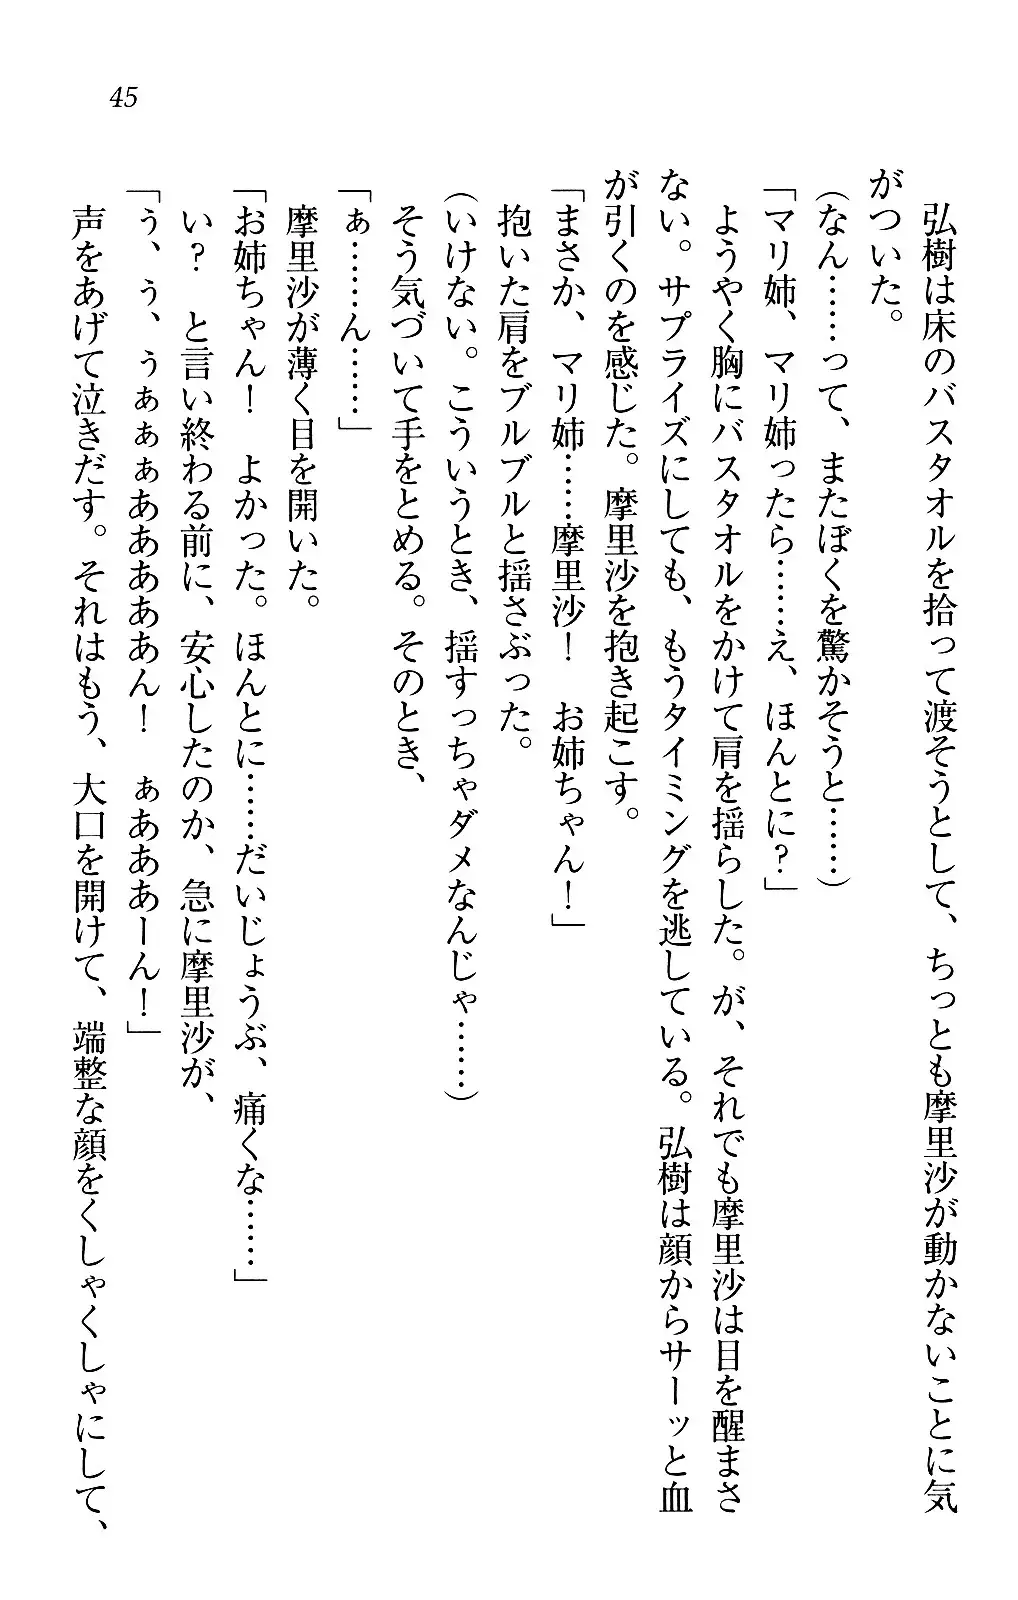 45
弘樹は床のバスタオルを拾って渡そうとして、ちっとも摩里沙が動かないことに気
がついた。
（なん……って、またぼくを驚かそうと……）
「マリ姉、マリ姉ったら……え、ほんとに？」
ようやく胸にバスタオルをかけて肩を揺らした。が、それでも摩里沙は目を醒まさ
ない。サプライズにしても、もうタイミングを逃している。弘樹は顔からサーッと血
が引くのを感じた。摩里沙を抱き起こす。
「まさか、マリ姉……摩里沙！　お姉ちゃん！」
抱いた肩をブルブルと揺さぶった。
（いけない。こういうとき、揺すっちゃダメなんじゃ……）
そう気づいて手をとめる。そのとき、
「ぁ……ん……」
摩里沙が薄く目を開いた。
「お姉ちゃん！　よかった。ほんとに……だいじょうぶ、痛くな……」
い？　と言い終わる前に、安心したのか、急に摩里沙が、
「う、う、うぁぁぁああああん！　ぁあああーん！」
声をあげて泣きだす。それはもう、大口を開けて、端整な顔をくしゃくしゃにして、